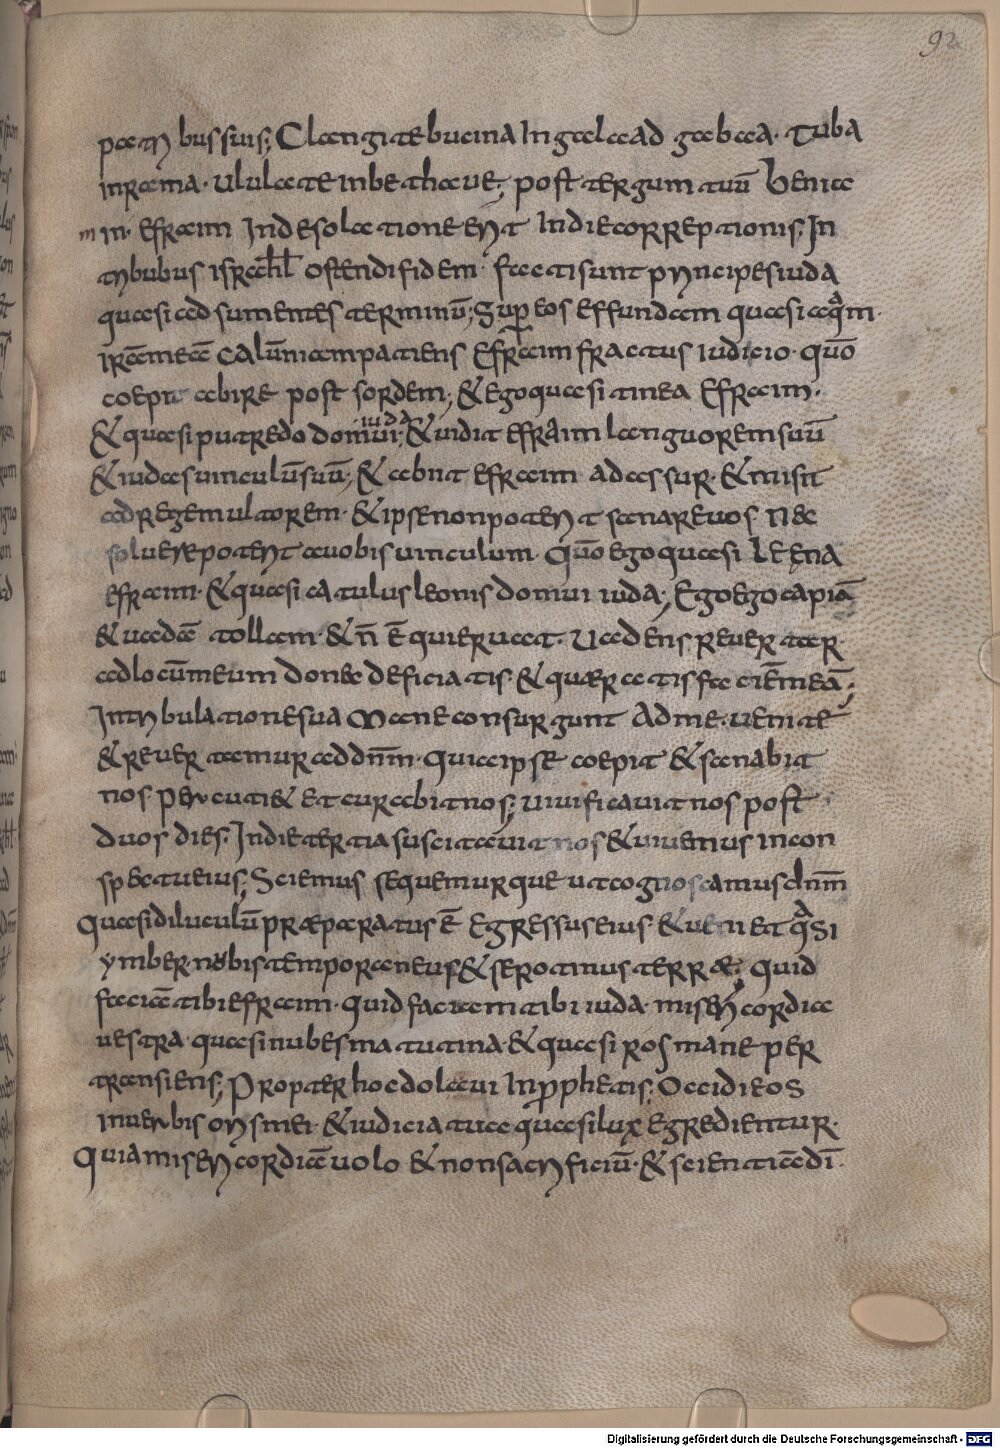 92
patribus suis; Clangite bucina In galaad gabaa· tuba
inrama· ululate inbethaue; post tergum tuū benia
m in· efraim In desolatione erit In die correptionis; In
tribubus israhl ostendi fidem· facti sunt principes iuda
quasi adsumentes terminū; Sup eos effundam quasi aqm·
irā meā calūniam patiens Efraim fractus iudicio· quō
coepit abire post sordem; & ego quasi tinea Efraim·
& quasi putredo domui; iuda & uidit efraim languorem suū
& iudas uinculū suū; & abiit efraim ad assur· & misit
ad regem ultorem· & ipse non poterit sanare uos nec
soluere poterit a uobis uinculum· Quō ego quasi leena
efraim· & quasi catulus leonis domui iuda; Ego ego capiā
& uadā tollam· & n̄ ē qui eruat· Uadens reuertar
ad locū meum donec deficiatis· & quæratis faciē meā;
In tribulatione sua mane consurgunt Ad me· uenite
& reuertamur ad dnm̄· quia ipse coepit & sanabit
nos percuti& et curabit nos; uiuificauit nos post
duos dies· In die tertia suscitauit nos & uiuemus in con
spectu eius; Sciemus sequemurque ut cognoscamus dnm̄
Quasi diluculū præparatus ē Egressus eius· & ueniet qasi
ymber nobis temporaneus & serotinus terræ; Quid
faciā tibi efraim· quid faciam tibi iuda· misericordia
uestra quasi nubes matutina· & quasi ros mane per
transiens; Propter hoc dolaui In pphetis; Occidi eos
in uerbis oris mei· & iudicia tua quasi lux egredientur·
Quia misericordiā uolo & non sacrificiū· & scientiā dī·
Digitalisierung gefördert durch die Deutsche Forschungsgemeinschaft - DFG